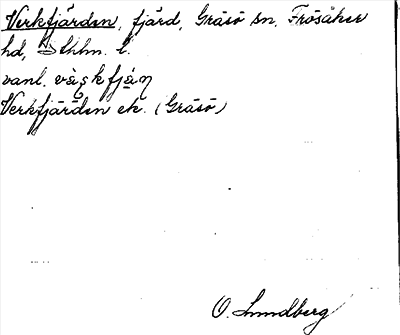 Verkfjärden, fjärd, Gräsö sn, Frösåker
hd, Sthlm. l.
vanl. vàʂkfjạ́ɳ
Verkfjärden ek. (Gräsö)
O. Lundberg